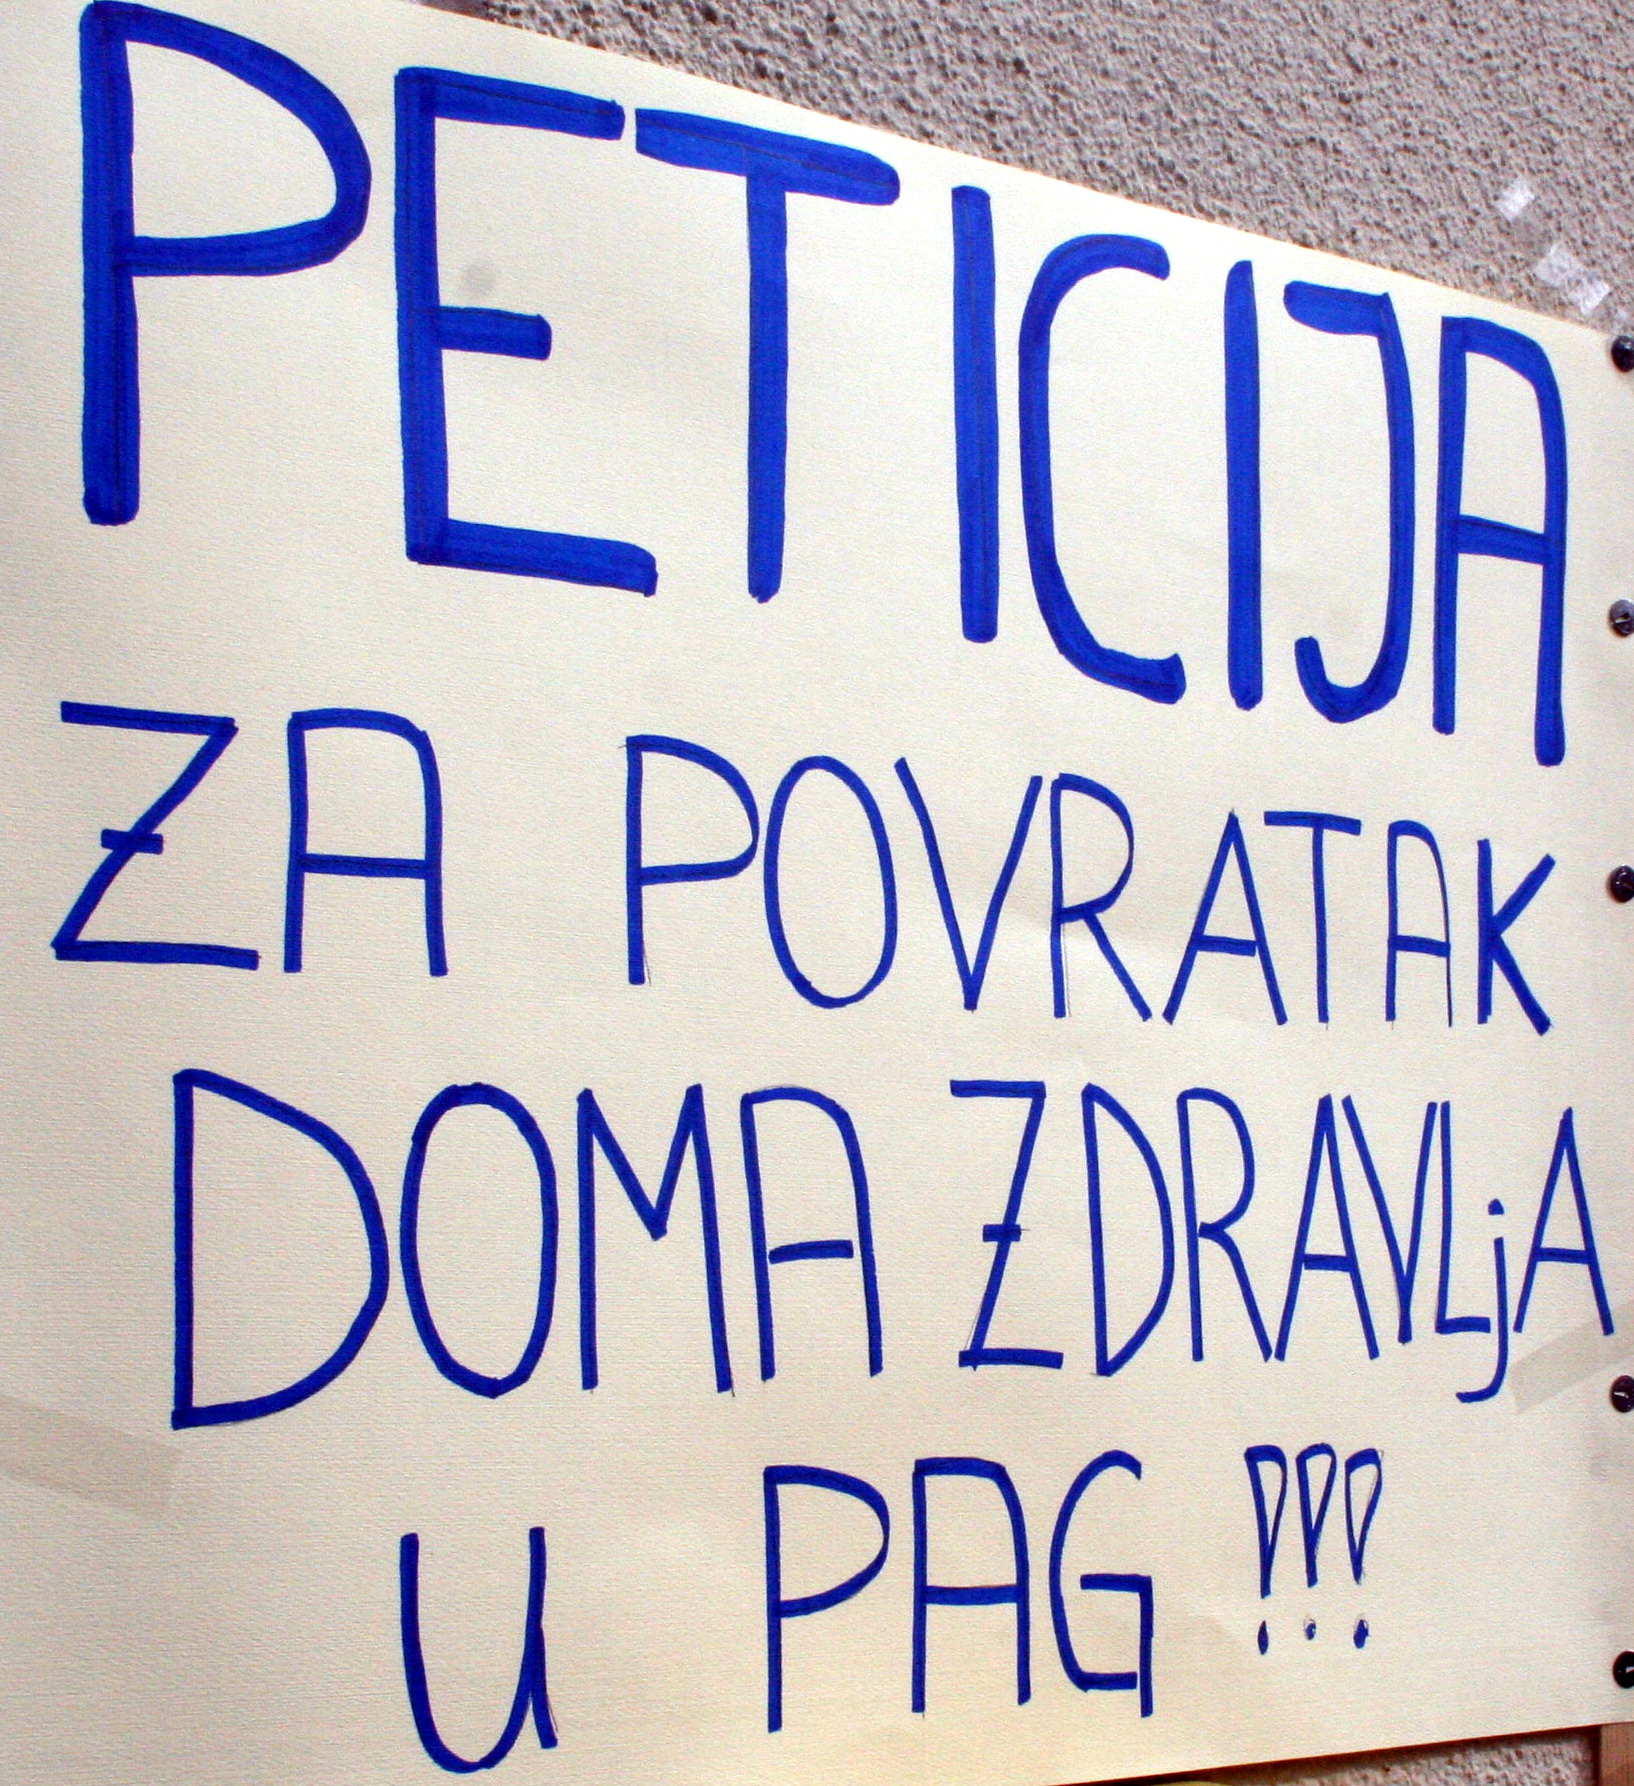 PETICIJA
ZA POVRATAK
DOMA ZDRAVLjA
U PAG !!!